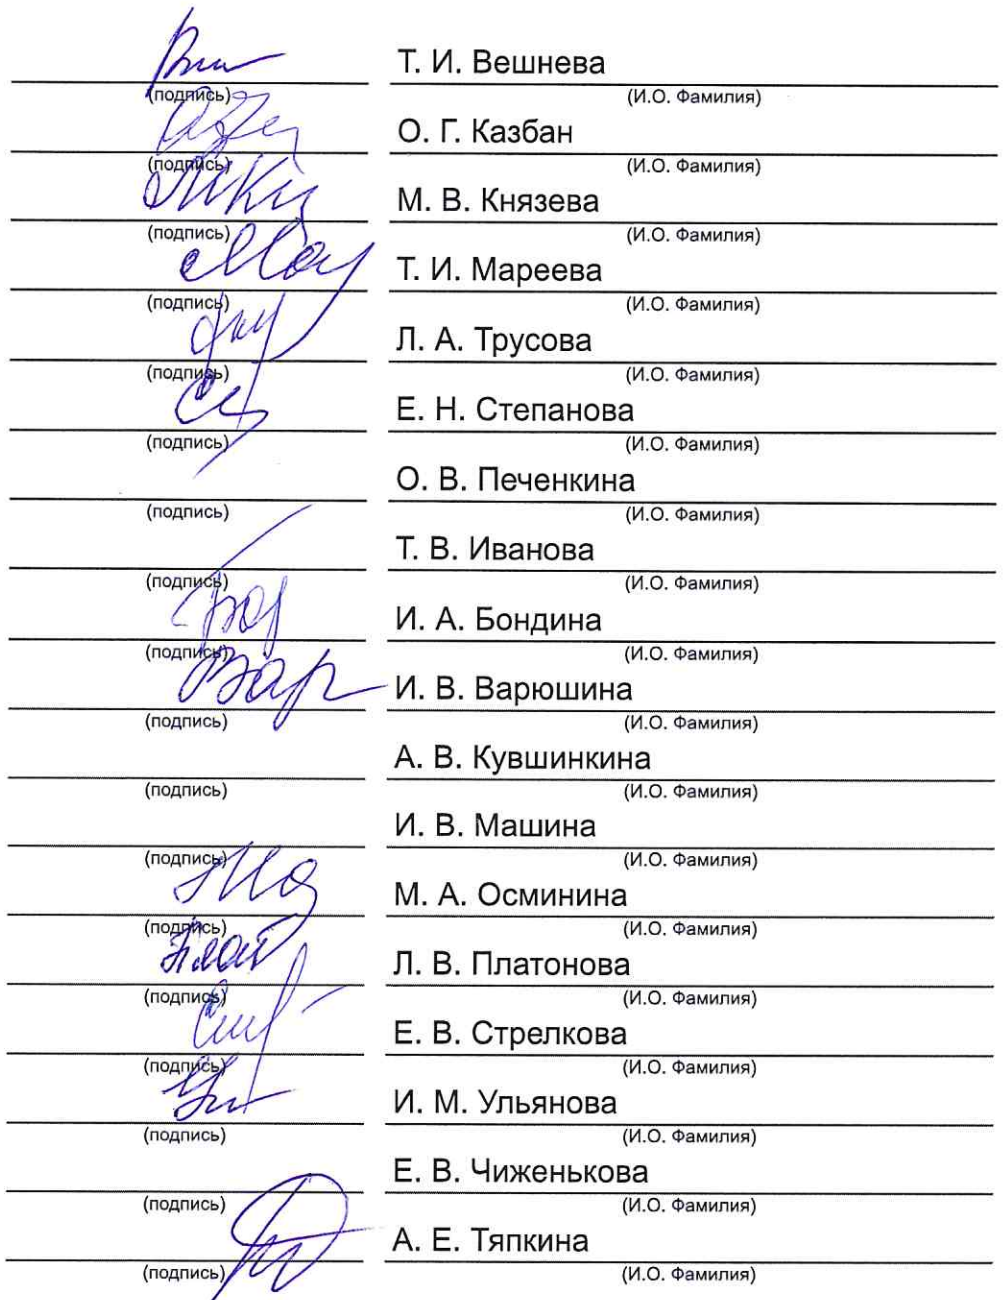 Т. И. Вешнева
(подпись) (И.О. Фамилия)
О. Г. Казбан
(подпись) (И.О. Фамилия)
М. В. Князева
(подпись) (И.О. Фамилия)
Т. И. Мареева
(подпись) (И.О. Фамилия)
Л. А. Трусова
(подпись) (И.О. Фамилия)
Е. Н. Степанова
(подпись) (И.О. Фамилия)
О. В. Печенкина
(подпись) (И.О. Фамилия)
Т. В. Иванова
(подпись) (И.О. Фамилия)
И. А. Бондина
(подпись) (И.О. Фамилия)
Вар И. В. Варюшина
(подпись) (И.О. Фамилия)
А. В. Кувшинкина
(подпись) (И.О. Фамилия)
И. В. Машина
(подпись) (И.О. Фамилия)
М. А. Осминина
(подпись) (И.О. Фамилия)
Л. В. Платонова
(подпись) (И.О. Фамилия)
Е. В. Стрелкова
(подпись) (И.О. Фамилия)
И. М. Ульянова
(подпись) (И.О. Фамилия)
Е. В. Чиженькова
(подпись) (И.О. Фамилия)
А. Е. Тяпкина
(подпись) (И.О. Фамилия)